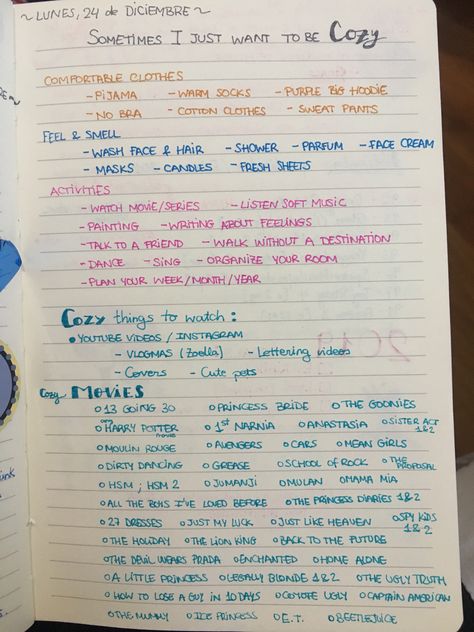 ~LUNES, 24 de DICIEMBRE~
SOMETIMES I JUST WANT TO BE Cozy
COMFORTABLE CLOTHES
- PIJAMA - WARM SOCKS - PURPLE BIG HOODIE
- NO BRA - COTTON CLOTHES - SWEAT PANTS
FEEL & SMELL
- WASH FACE & HAIR - SHOWER - PARFUM - FACE CREAM
- MASKS - CANDLES - FRESH SHEETS
ACTIVITIES
- WATCH MOVIE/SERIES - LISTEN SOFT MUSIC
- PAINTING - WRITING ABOUT FEELINGS
- TALK TO A FRIEND - WALK WITHOUT A DESTINATION
- DANCE - SING - ORGANIZE YOUR ROOM
- PLAN YOUR WEEK/MONTH/YEAR
Cozy things to watch:
• YOUTUBE VIDEOS / INSTAGRAM
- VLOGMAS (Zoella) - Lettering videos
- Covers - Cute pets
Cozy MOVIES
o 13 GOING 30 o PRINCESS BRIDE o THE GOONIES
o HARRY POTTER movie o 1st NARNIA o ANASTASIA o SISTER ACT 1&2
o MOULIN ROUGE o AVENGERS o CARS o MEAN GIRLS
o DIRTY DANCING o GREASE o SCHOOL OF ROCK o THE PROPOSAL
o HSM ; HSM 2 o JUMANJI o MULAN o MAMA MIA
o ALL THE BOYS I'VE LOVED BEFORE o THE PRINCESS DIARIES 1&2
o 27 DRESSES o JUST MY LUCK o JUST LIKE HEAVEN o SPY KIDS 1&2
o THE HOLIDAY o THE LION KING o BACK TO THE FUTURE
o THE DEVIL WEARS PRADA o ENCHANTED o HOME ALONE
o A LITTLE PRINCESS o LEGALLY BLONDE 1&2 o THE UGLY TRUTH
o HOW TO LOSE A GUY IN 10 DAYS o COYOTE UGLY o CAPTAIN AMERICAN
o THE MUMMY o ICE PRINCESS o E.T. o BEETLEJUICE